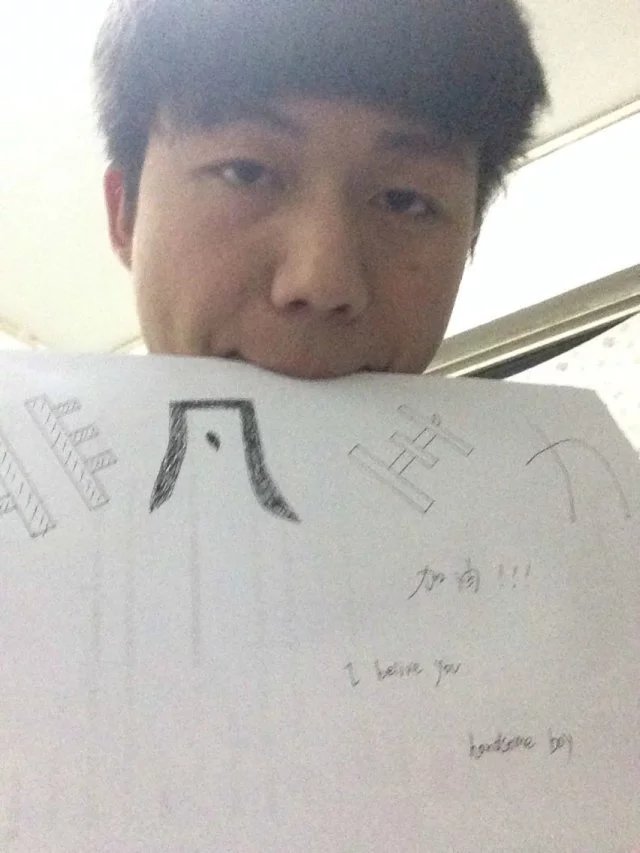 非凡
加油!!!
I belive you
handsome boy